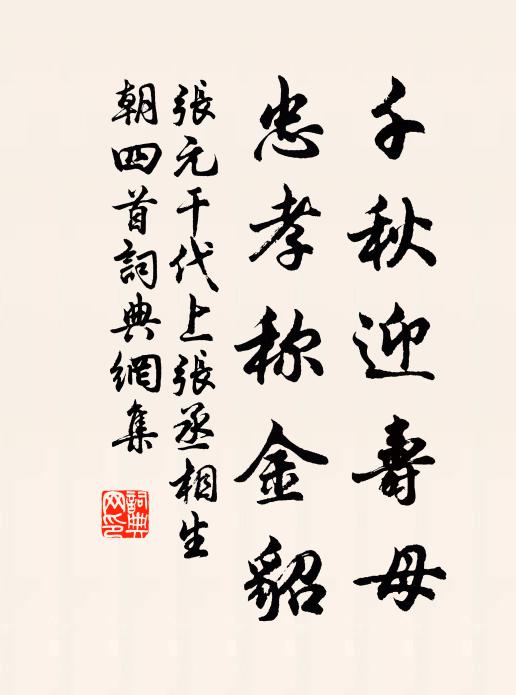 千秋迎壽母
忠孝称金貂
張元干代上張丞相生
朝四首詞典網集
詞典
网印